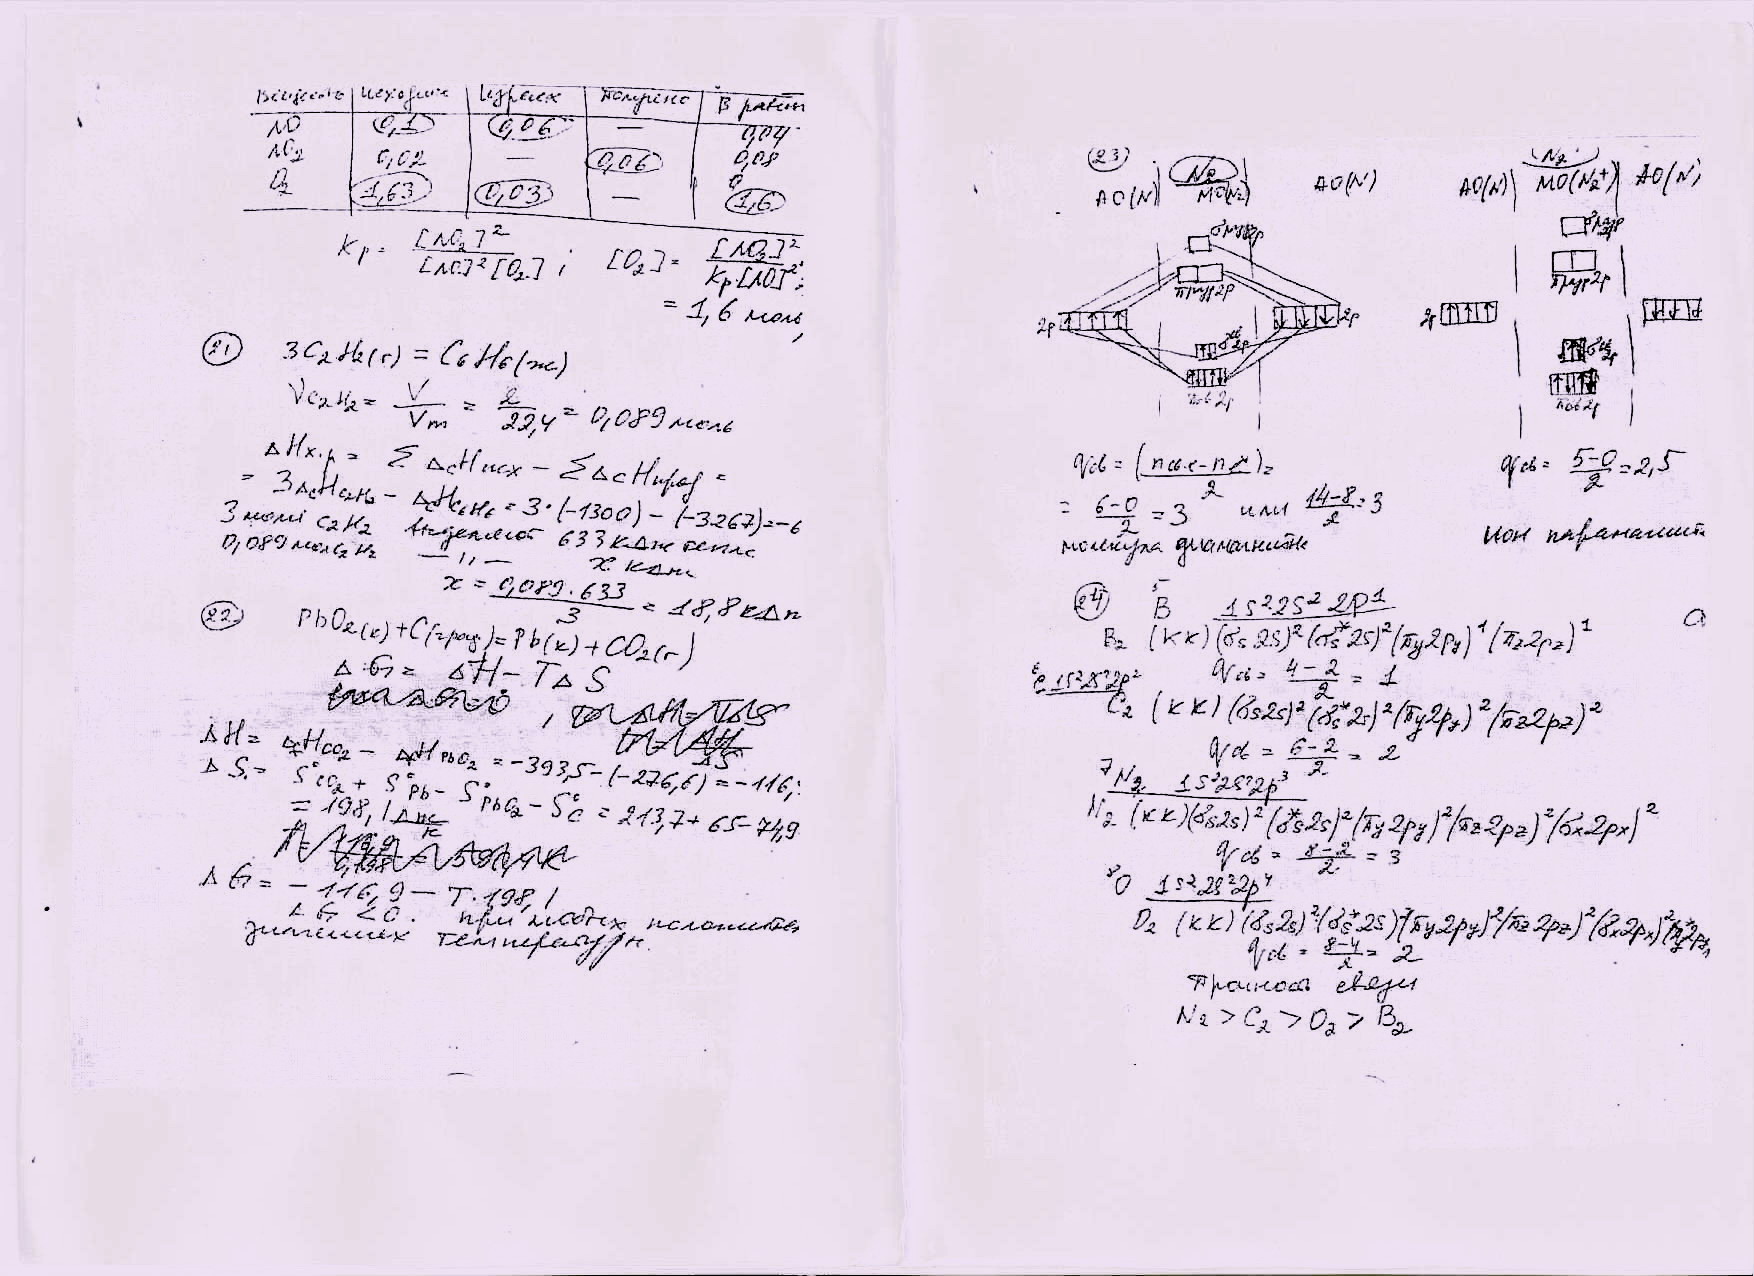 Вещество Исходные Израсх Получено В равнов
NO 0,1 0,06 — 0,04
NO2 0,02 — 0,06 0,08
O2 1,63 0,03 — 1,6
Kp = [NO2]² / [NO]² [O2] ; [O2] = [NO2]² / Kp [NO]² =
= 1,6 моль
21 3C2H2(г) = C6H6(ж)
νC2H2 = V/Vm = 2/22,4 = 0,089 моль
ΔHх.р = Σ ΔcHисх − Σ ΔcHпрод =
= 3ΔcHC2H2 − ΔcHC6H6 = 3·(−1300) − (−3267) = −6
3 моль C2H2 выделяют 633 кДж тепла
0,089 моль C2H2 —〃— x кДж
x = 0,089·633 / 3 = 18,8 кДж
22 PbO2(к) + C(граф) = Pb(к) + CO2(г)
ΔG = ΔH − TΔS
ΔH = ΔHCO2 − ΔHPbO2 = −393,5 − (−276,6) = −116,
ΔS = S°CO2 + S°Pb − S°PbO2 − S°C = 213,7 + 65 − 74,9
= 198,1 Дж/К
ΔG = −116,9 − T·198,1
ΔG < 0. при любых положител
значениях температуры.
23 N2 N2
AO(N) MO(N2) AO(N) AO(N) MO(N2+) AO(N)
σ разр 2p σ разр 2p
π разр 2p π разр 2p
2p 2p 2p
σ св 2p σ св 2p
π св 2p π св 2p
qсв = (nсв.е − nр)/2 = qсв = 5−0/2 = 2,5
= 6−0/2 = 3 или 14−8/2 = 3
молекула диамагнитна Ион парамагнит
24 5 B 1s²2s²2p¹ a
B2 (KK)(σs2s)²(σs*2s)²(πy2py)¹(πz2pz)¹
qсв = 4−2/2 = 1
6C 1s²2s²2p²
C2 (KK)(σs2s)²(σs*2s)²(πy2py)²(πz2pz)²
qсв = 6−2/2 = 2
7 N2 1s²2s²2p³
N2 (KK)(σs2s)²(σs*2s)²(πy2py)²(πz2pz)²(σx2px)²
qсв = 8−2/2 = 3
8O 1s²2s²2p⁴
O2 (KK)(σs2s)²(σs*2s)²(πy2py)²(πz2pz)²(σx2px)²(πy*2py
qсв = 8−4/2 = 2
Прочность связи
N2 > C2 > O2 > B2